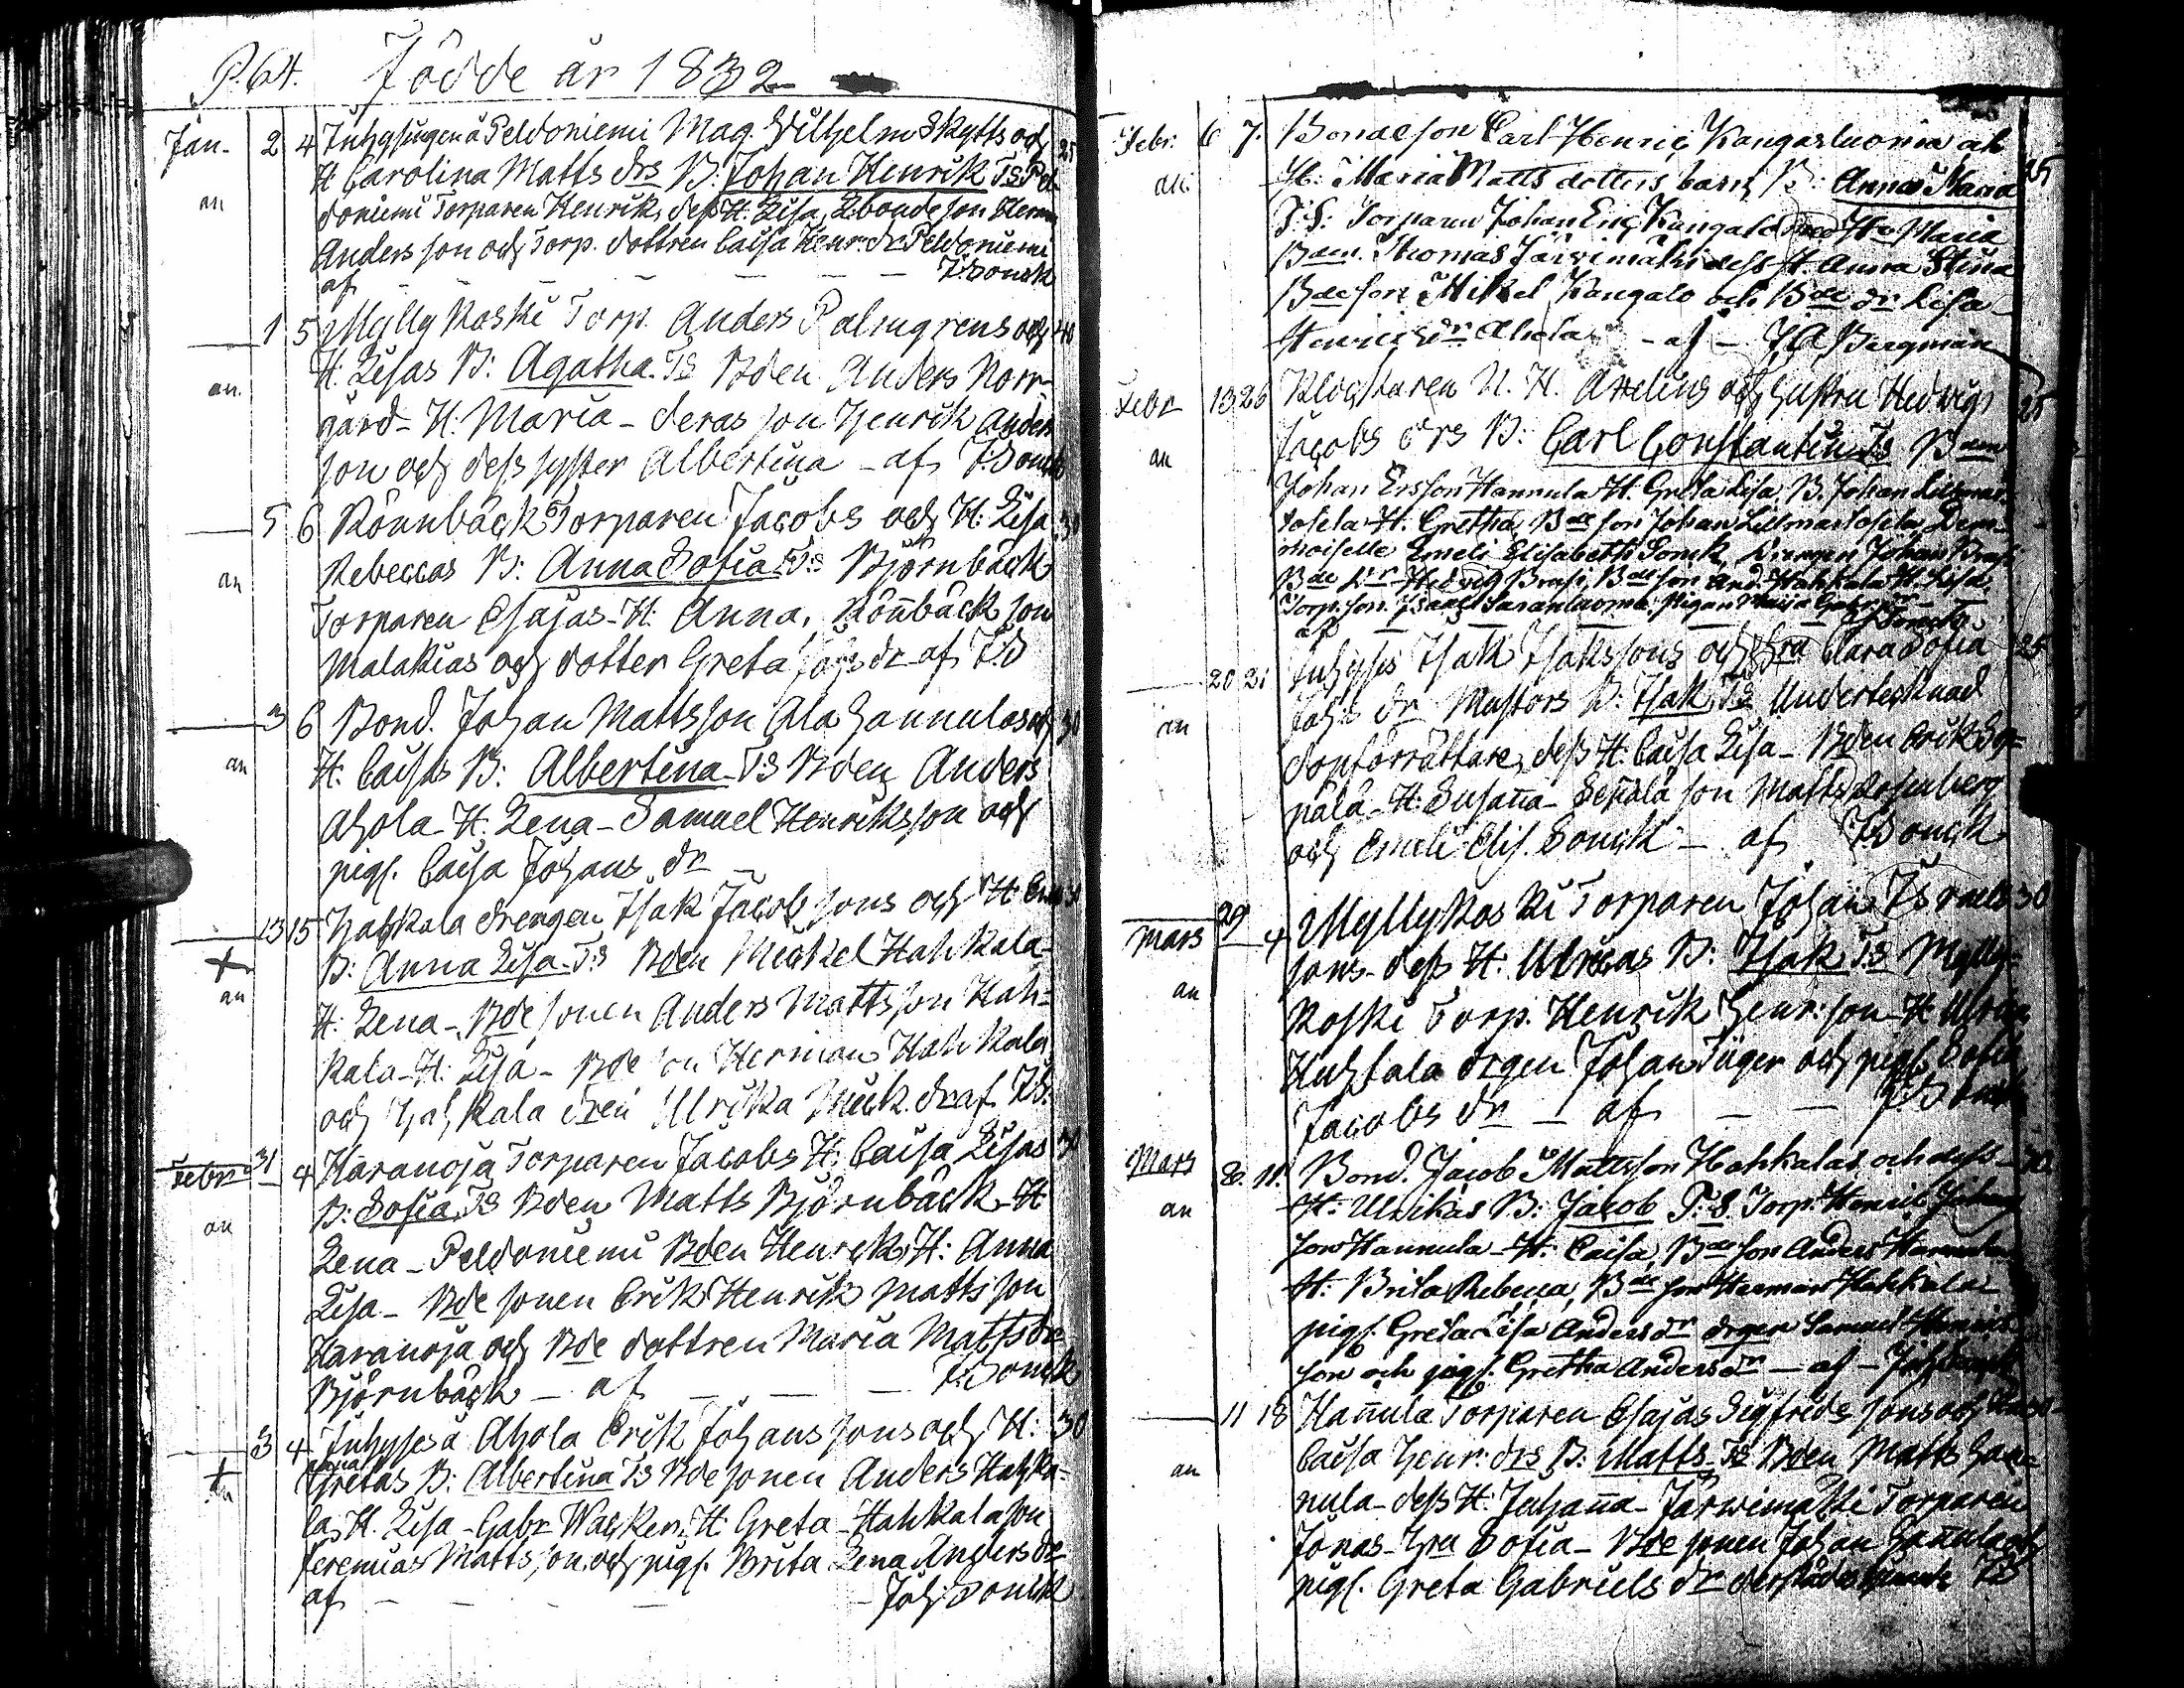 P. 64. Födde år 1832
Jan. 2 4 Inhysingen å Peldoniemi Mag. Wilhelm Skytts och 25
an H Carolina Matts drs B: Johan Henrik T:s Pel-
doniemi Torparen Henrik, dess H: Lisa, Bonde son Herm.
Andersson och Torp. dottren Caisa Henr: dr Peldoniemi
af - - - - J:Sonck
1 5 Myllykoski Torp. Anders Palmgrens och 40
an. H: Lisas B: Agatha. T:s Bden Anders Norr-
gård - H: Maria - deras son Henrik Anders
son och dess syster Albertina - af J:Sonck
5 6 Rönnbäck Torparen Jacobs och H: Lisa 31
an Rebeccas B: Anna Sofia T:s Björnbäck
Torparen Esajas - H: Anna, Rönnbäck son
Malakias och dotter Greta Jos: dr af J:S
3 6 Bond. Johan Mattsson Ala Hannulas och 30
an H: Caisas B: Albertina T:s Bden Anders
Ahola H: Lena - Samuel Henriksson och
pigs. Caisa Johans dr
13 15 Hahkala drengen Isak Jacobssons och H:
+ B: Anna Lisa T:s Bden Mickel Hahkala
an H: Lena - Bde sonen Anders Mattsson Hah-
kala - H: Lisa - Bde son Herman Hahkala
och Hahkala Ulrika Mick. dr af J:S.
Febr 31 4 Haranoja Torparen Jacobs H: Caisa Lisas
an B: Sofia T:s Bden Matts Björnbäck H
Lena - Peldoniemi Bden Henrik H: Anna
Lisa - Bde sonen Erik Henrik Mattsson
Haranoja och Bde dottren Maria Matts dr
Björnbäck - af - - - J:Sonck
3 4 Inhyses å Ahola Erik Johanssons och H: 30
+ Anna
an Gretas B: Albertina T:s Bde sonen Anders Hahka-
la, H. Lisa - Gabr Wacker, H: Greta - Hahkala son
Jeremias Mattsson, och pigs. Brita Lena Anders dr
af - - - - Joh: Sonck
Febr. 6 7. Bondeson Carl Henric Kangasluoma och
an H: Maria Matts dotters barn B: Anna Maria 25
T:S: Torparen Johan Eric Kangalo Hu Maria
Bden Thomas Järvimäki dess H. Anna Stina
Bdeson Mikel Kangalo och Bde dr Lisa
Henrics dr Ahola - af - J A Bergman
Febr 13 26 Klockaren N. H. Axelins och hustru Hedvigs 25
an Jacobs drs B: Carl Constantin T:s Bden
Johan Ersson Hannula H. Greta Lisa, B. Johan Lillmar-
tosela H. Gretha, Bde son Johan Lillmartosela Dem-
moiselle Emeli Elisabeth Sonck, Drengen Johan Bras
Bde dr Hedvig Bras, Bde son And. Hahkala H. Lisa,
Torp. son Isaac Saranluoma, Pigan Maija Gabr. dr
af - - - - - J Sonck
20 21 Inhyses Isak Isakssons och Hru Clara Sofia 25
an Joh:s dr Mustors B: Isak, T:s Undertecknad
dopförrättare, dess H: Caisa Lisa - Bden Erik Sep-
pälä - H: Susanna - Seppälä son Matts Rosenberg
och Emeli Elis. Sonck - af J:Sonck
Mars 29 4 Myllykoski Torparen Johan Israels 30
an sons - dess H: Ulricas B: Isak T:s Mylly-
koski Torp. Henrik Henr: son - H: Ulrica
Huhtala drgen Johan Tiger och pigs Sofia
Jacobs dr - af - - J Sonck
Mars 8. 11. Bond. Jacob Mattsson Hahkalas och dess
an H: Ulrikas B: Jacob T:S. Torp: Henrik Johans
son Hannula - H: Caisa, Bde son Anders Hannula
H: Brita Rebecca, Bde son Herman Hahkala
pigs. Greta Lisa Anders dr drgen Samuel Henriks
son och pigs. Gretha Anders dr - af - Joh: Sonck
11 18 Hannula Torparen Esajas Sigfrids sons och
an Caisa Henr: drs B: Matts T:s Bden Matts Han-
nula - dess H: Johanna - Järwimäki Torparen
Jonas - Hru Sofia - Bde sonen Johan Hannula och
pigs. Greta Gabriels dr derstädes tjenande J:S